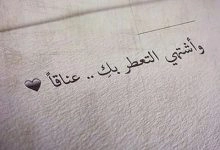 وأشتهي التعطر بك .. عناقاً 🖤